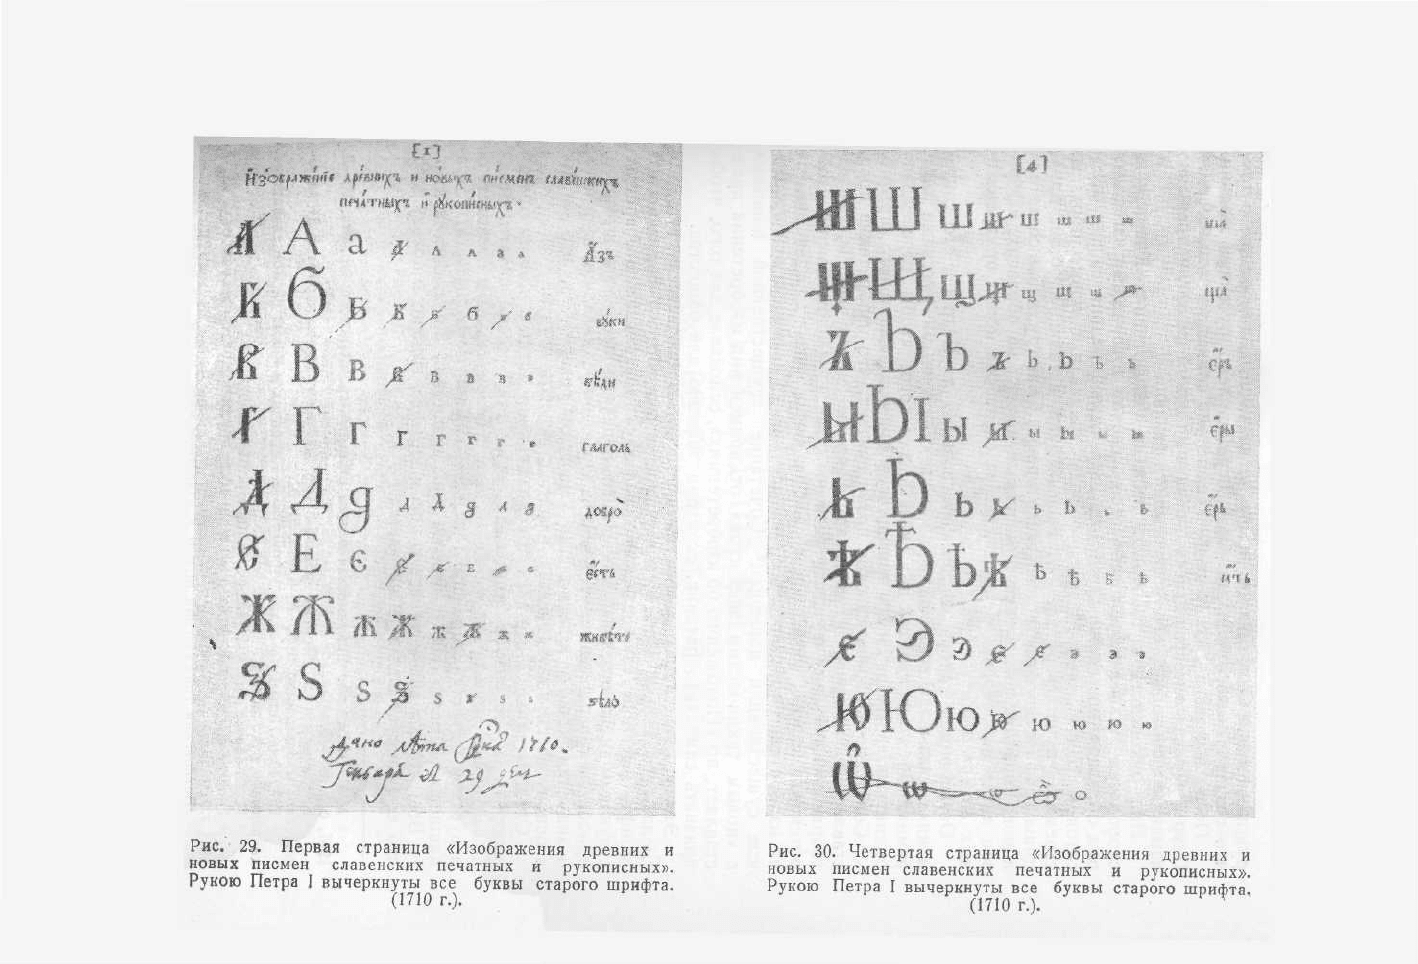 [1]
Изображéнїе дрéвнихъ и нóвыхъ пи́сменъ славéнскихъ
печáтныхъ и рꙋкопи́сныхъ.
А А а А А А а А Азъ
Б б Б Б Б б Б б бꙋки
В В В В В В В В вѣди
Г Г Г Г Г Г Г Г глаголь
Д Д д Д Д д Д д добрò
Е Е є Е Е Е Е Е есть
Ж Ж Ж Ж Ж Ж Ж Ж живѣте
Ѕ Ѕ Ѕ Ѕ Ѕ Ѕ Ѕ Ѕ ѕѣлò
Дано лѣта 1710.
Генваря 29 дня
Рис. 29. Первая страница «Изображения древних и
новых писмен славенских печатных и рукописных».
Рукою Петра I вычеркнуты все буквы старого шрифта.
(1710 г.).
[4]
Ш Ш ш ш ш ш ш ш ша
Щ Щ щ щ щ щ щ щ ща
Ъ Ъ Ъ ъ ъ ъ ъ ъ єръ
Ы Ы ы ы ы ы ы ы єры
Ь Ь ь ь ь ь ь ь єрь
Ѣ Ѣ ѣ ѣ ѣ ѣ ѣ ѣ ять
Є Э э є є э э э
Ю Ю ю ю ю ю ю ю
Ѿ ѡ ѡ ѡ о
Рис. 30. Четвертая страница «Изображения древних и
новых писмен славенских печатных и рукописных».
Рукою Петра I вычеркнуты все буквы старого шрифта.
(1710 г.).